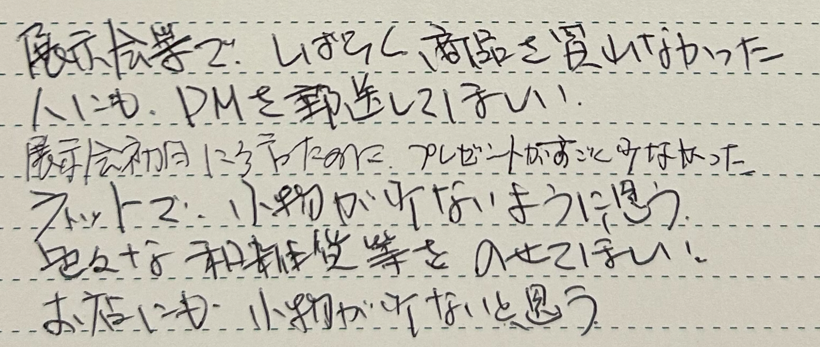 展示会等で、しばらく、商品を買わなかった
人にも、DMを郵送してほしい。
展示会初日に行ったのに、プレゼントがすごく少なかった
ネットで、小物が少ないように思う。
色々な 和雑貨等を のせてほしい。
お店にも 小物が少ないと思う